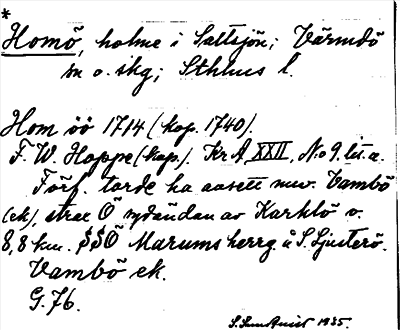 *
Homö, holme i Saltsjön; Värmdö
sn o. skg; Sthlms l.
Hom öö 1714 (kop. 1740).
F. W. Hoppe (kop.). Kr A, XXII, No 9. lit. a.
Förf. torde ha avsett nuv. Vambö
(ek), strax Ö sydändan av Karklö o.
8,8 km. SSÖ Marums herrg. å S. Ljusterö.
Vambö ek.
G. 76.
S. Sundqvist 1935.